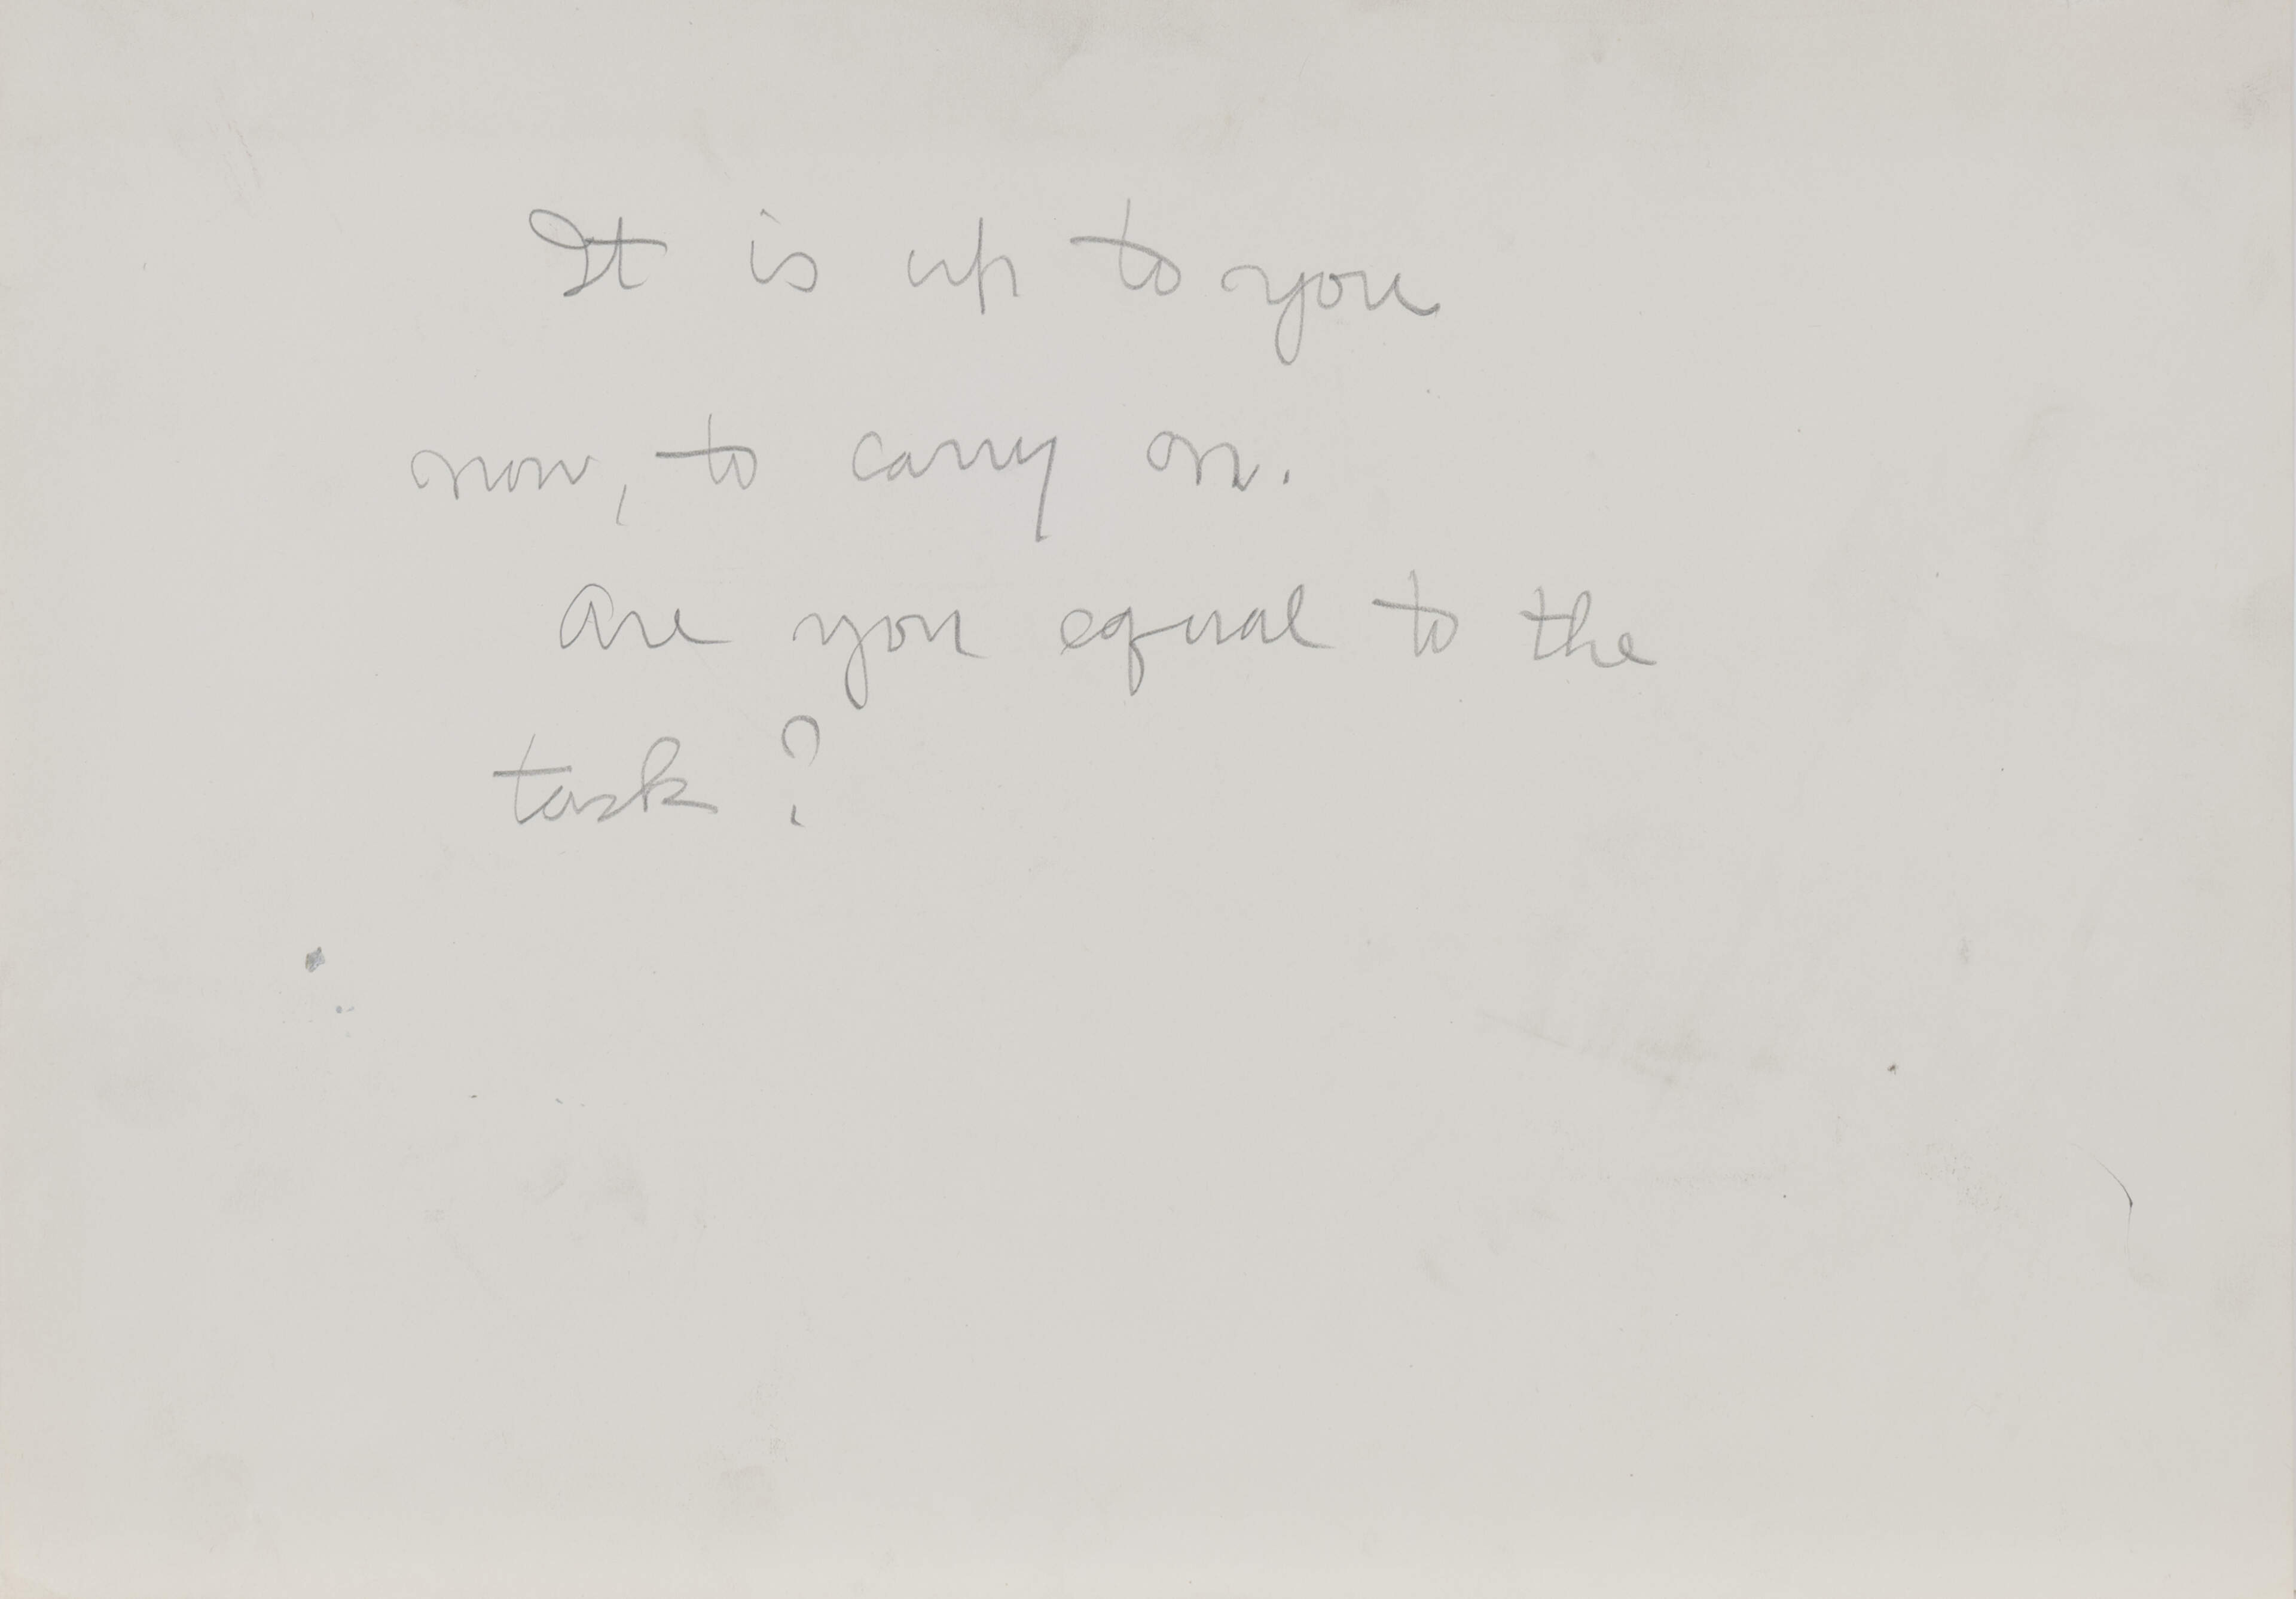 It is up to you
now, to carry on.
Are you equal to the
task?